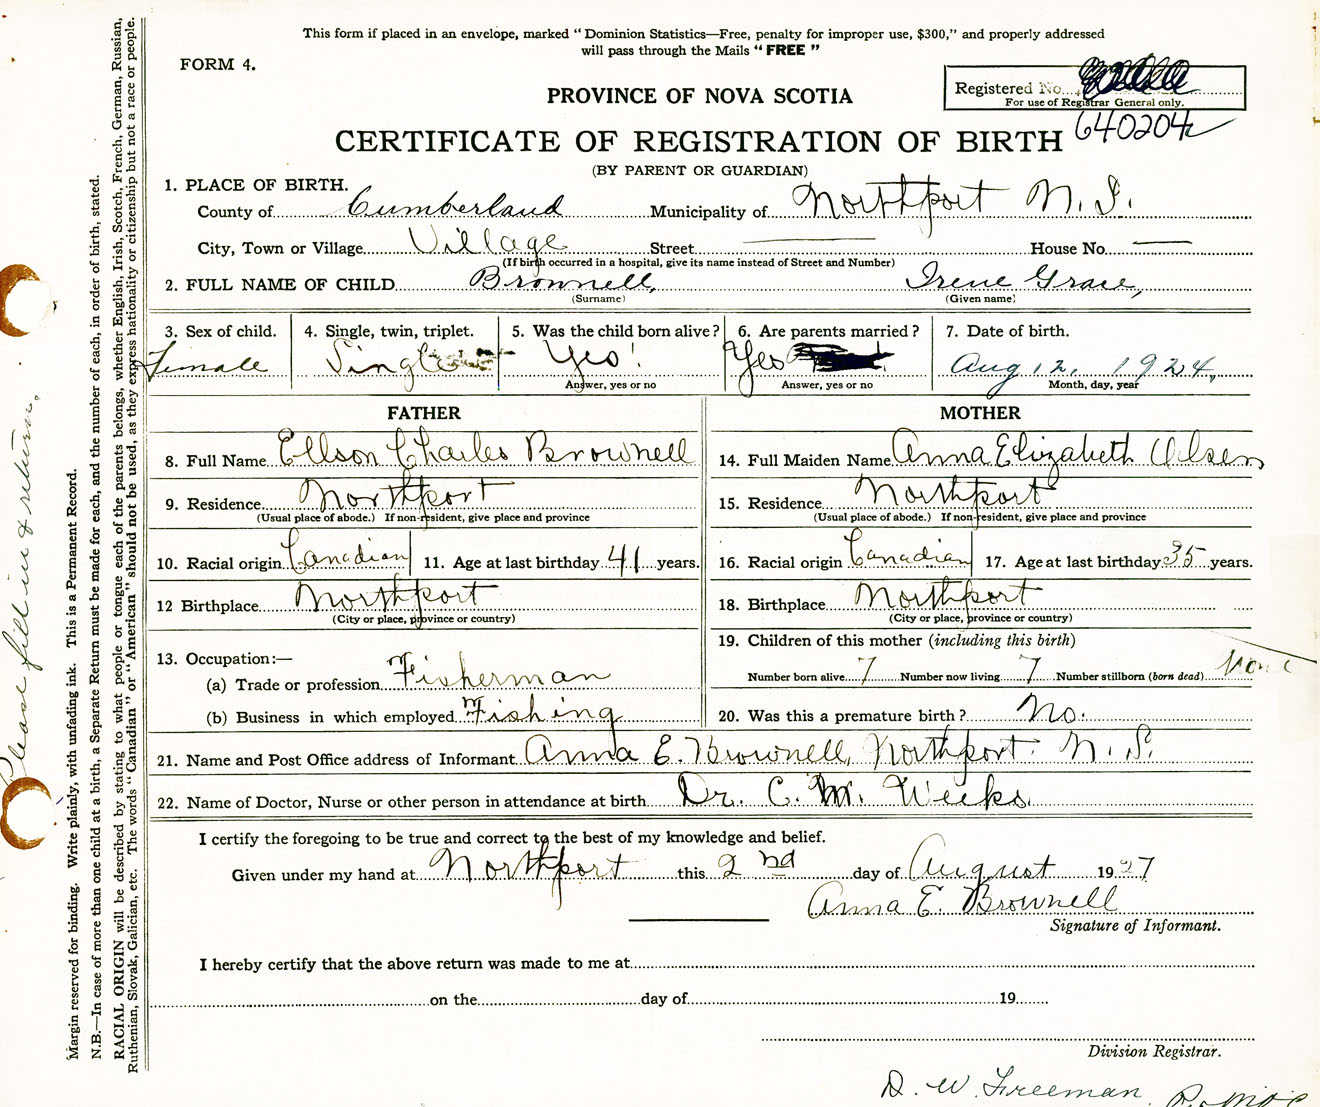 This form if placed in an envelope, marked “ Dominion Statistics—Free, penalty for improper use, $300,” and properly addressed
will pass through the Mails “ FREE ”
FORM 4.
Registered No.
For use of Registrar General only.
640204
PROVINCE OF NOVA SCOTIA
CERTIFICATE OF REGISTRATION OF BIRTH
(BY PARENT OR GUARDIAN)
1. PLACE OF BIRTH.
County of Cumberland Municipality of Northport N.S.
City, Town or Village Village Street — House No. —
(If birth occurred in a hospital, give its name instead of Street and Number)
2. FULL NAME OF CHILD Brownell, Irene Grace,
(Surname) (Given name)
3. Sex of child. 4. Single, twin, triplet. 5. Was the child born alive? 6. Are parents married? 7. Date of birth.
Female Single Yes! Yes Aug 12, 1924,
Answer, yes or no Answer, yes or no Month, day, year
FATHER MOTHER
8. Full Name Ellson Charles Brownell 14. Full Maiden Name Anna Elizabeth Olsen
9. Residence Northport 15. Residence Northport
(Usual place of abode.) If non-resident, give place and province (Usual place of abode.) If non-resident, give place and province
10. Racial origin Canadian 11. Age at last birthday 41 years. 16. Racial origin Canadian 17. Age at last birthday 35 years.
12 Birthplace Northport 18. Birthplace Northport
(City or place, province or country) (City or place, province or country)
13. Occupation:— 19. Children of this mother (including this birth)
(a) Trade or profession Fisherman Number born alive 7 Number now living 7 Number stillborn (born dead) None
(b) Business in which employed Fishing 20. Was this a premature birth? No.
21. Name and Post Office address of Informant Anna E. Brownell, Northport N.S.
22. Name of Doctor, Nurse or other person in attendance at birth Dr. C. M. Weeks.
I certify the foregoing to be true and correct to the best of my knowledge and belief.
Given under my hand at Northport this 2nd day of August 1927
Anna E. Brownell
Signature of Informant.
I hereby certify that the above return was made to me at
on the day of 19
Division Registrar.
D. W. Freeman,
Margin reserved for binding. Write plainly, with unfading ink. This is a Permanent Record.
N.B.—In case of more than one child at a birth, a Separate Return must be made for each, and the number of each, in order of birth, stated.
RACIAL ORIGIN will be described by stating to what people or tongue each of the parents belongs, whether English, Irish, Scotch, French, German, Russian,
Ruthenian, Slovak, Galician, etc. The words “ Canadian ” or “ American ” should not be used, as they express nationality or citizenship but not a race or people.
Please fill in & return.